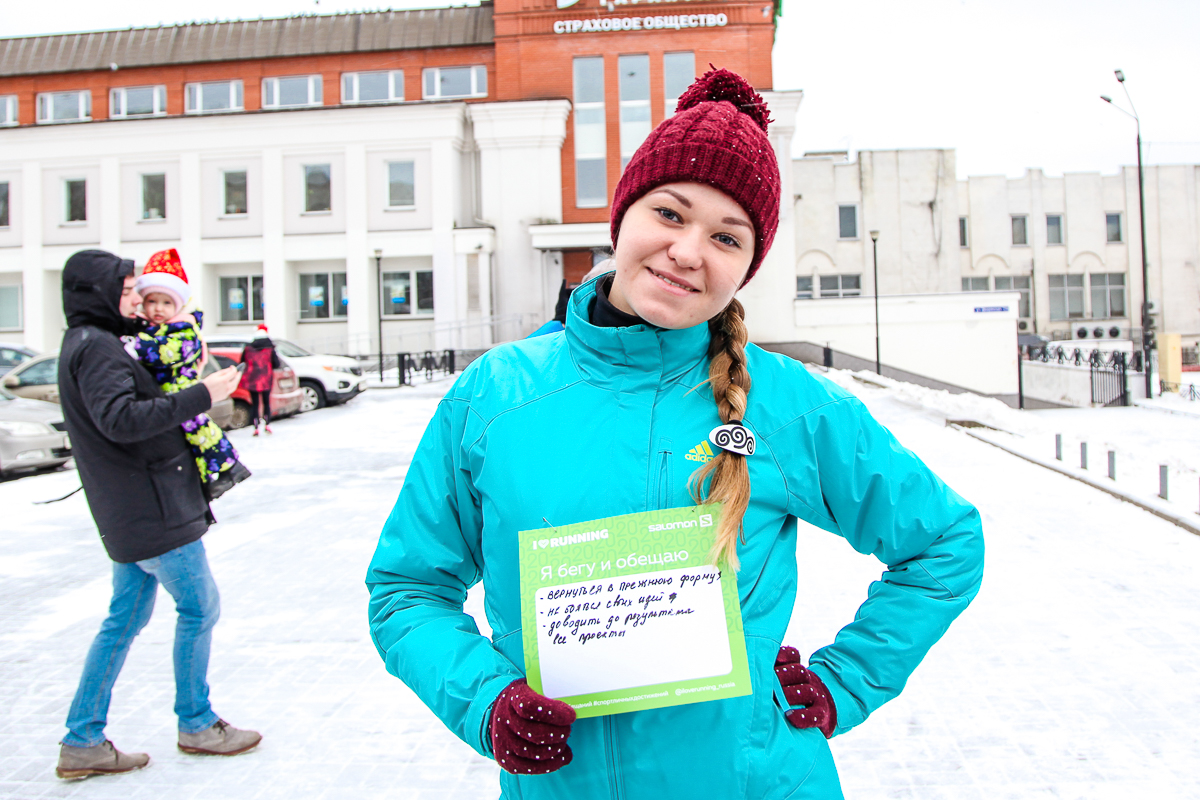 СТРАХОВОЕ ОБЩЕСТВО
adidas
I RUNNING
salomon
Я бегу и обещаю
- вернуться в прежнюю форму
- не боятся своих идей
- доводить до результата
все проекты
#спортпинаетдостижений @iloverunning_russia